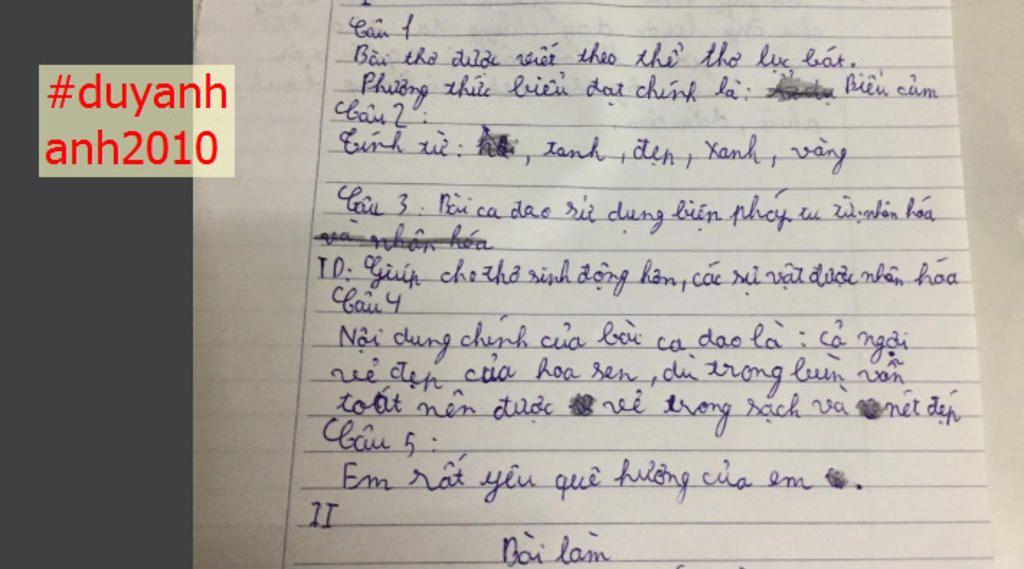 #duyanh
anh2010
I
Câu 1
Bài thơ được viết theo thể thơ lục bát.
Phương thức biểu đạt chính là: Biểu cảm
Câu 2:
Tính từ: , xanh, đẹp, xanh, vàng
Câu 3: Bài ca dao sử dụng biện pháp tu từ: nhân hóa
và nhân hóa
TD: Giúp cho thơ sinh động hơn, các sự vật được nhân hóa
Câu 4
Nội dung chính của bài ca dao là: Cả ngợi
vẻ đẹp của hoa sen, dù trong bùn vẫn
toát nên được vẻ trong sạch và nét đẹp
Câu 5:
Em rất yêu quê hương của em.
II
Bài làm